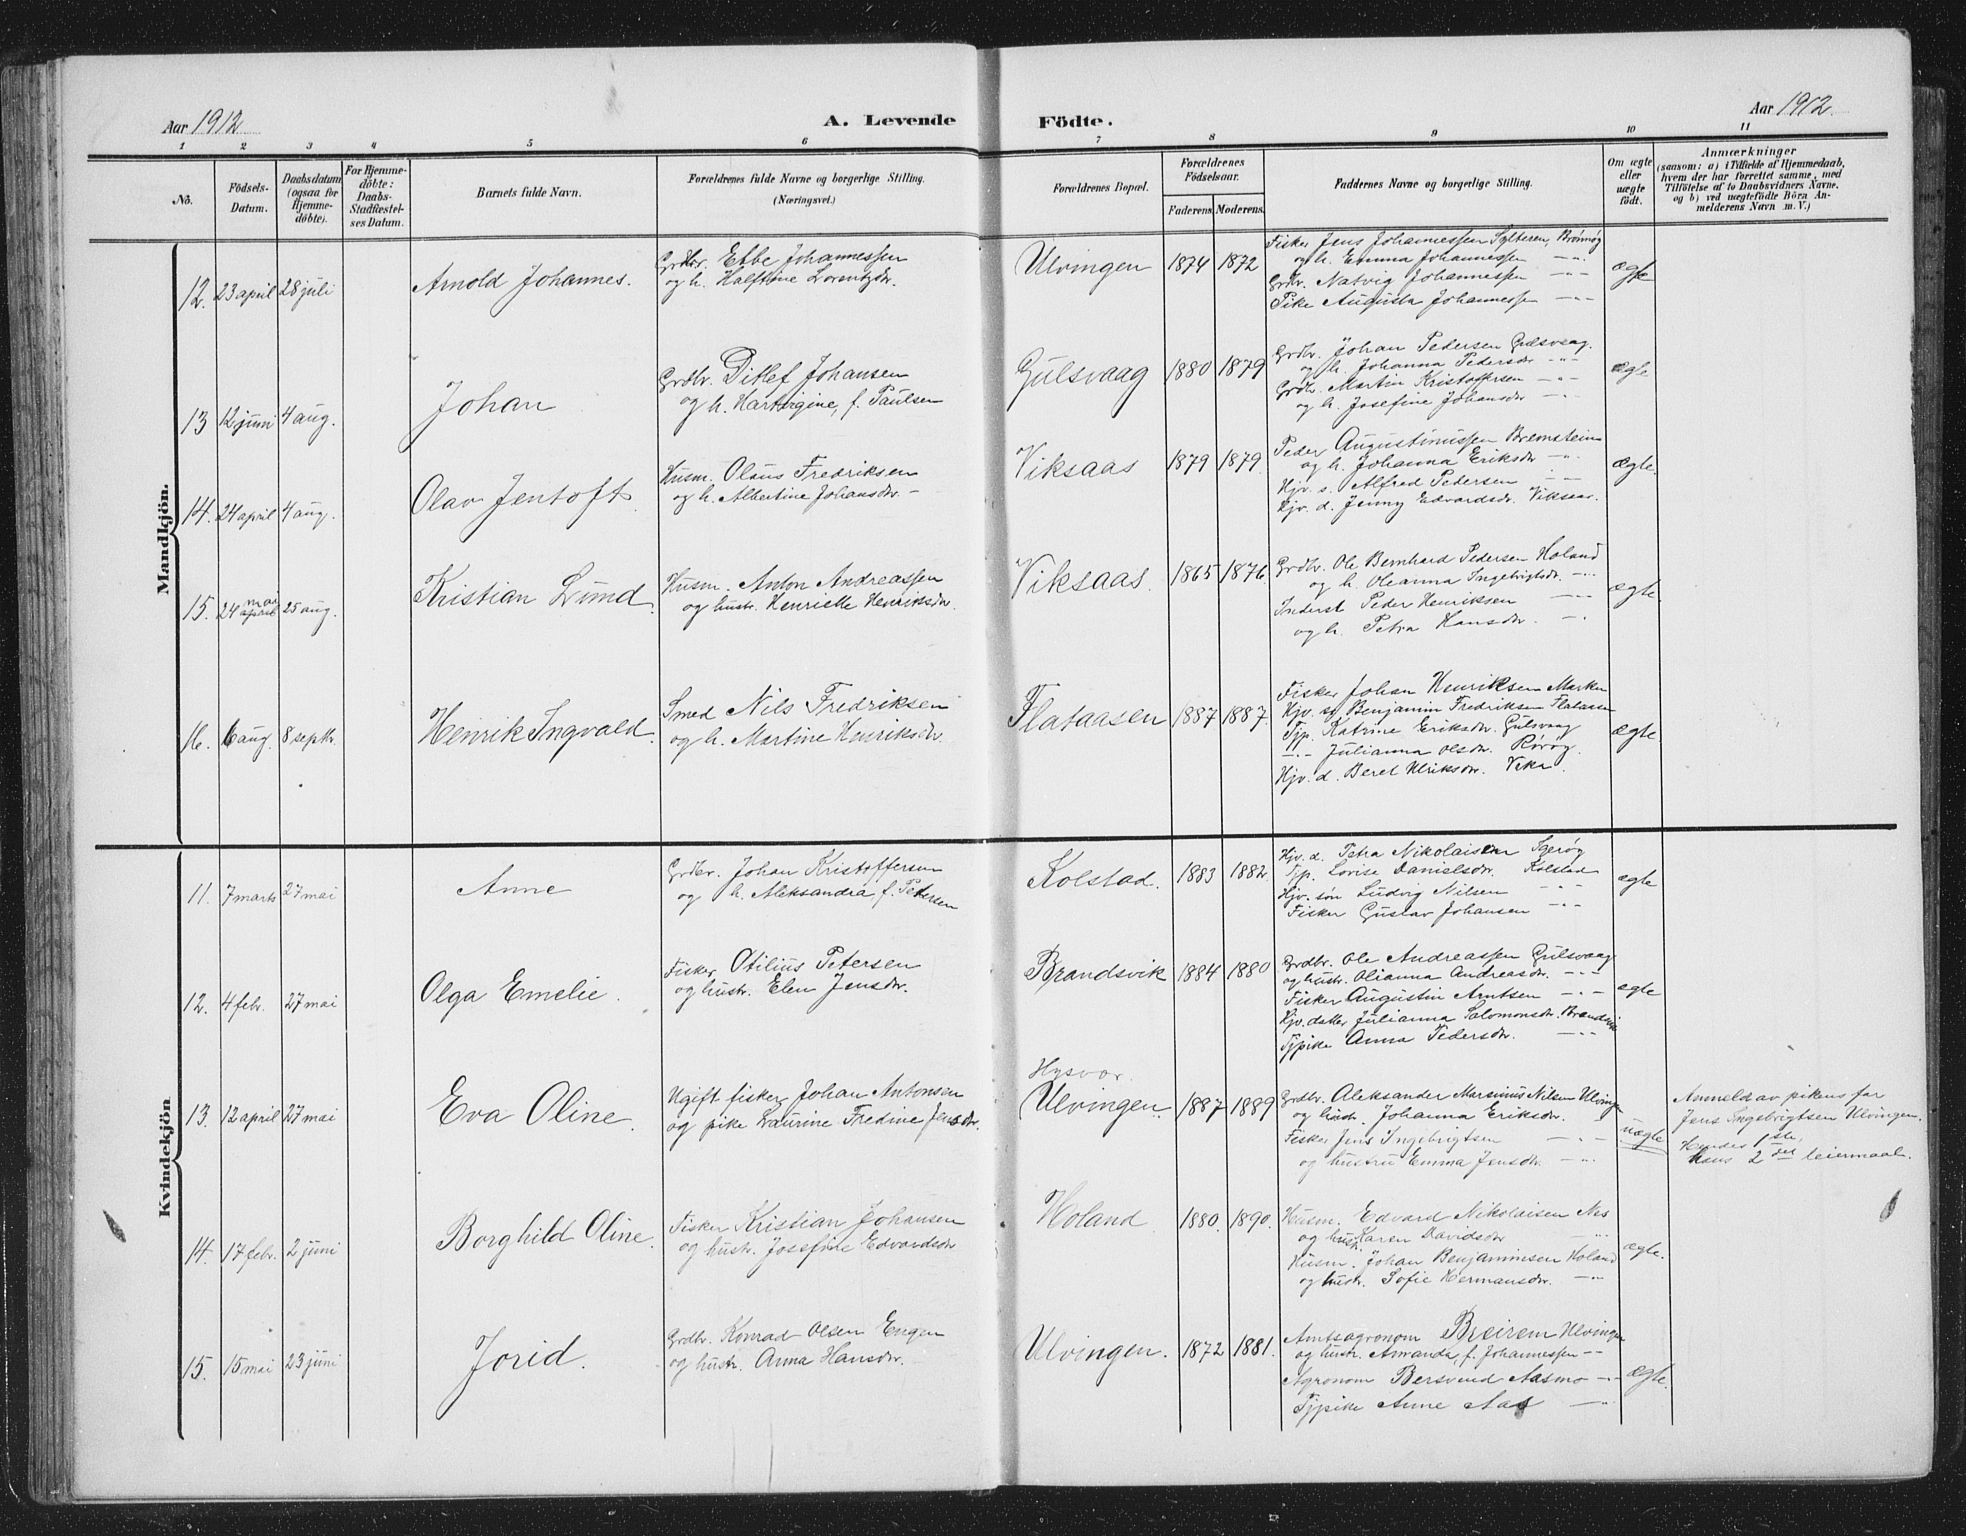 Aar 1912
A. Levende
Födte.
Aar 1912.
1 2 3 4 5 6 7 8 9 10 11
No.
Födsels-
Datum.
Daabsdatum
(ogsaa for
Hjemme-
döbte).
For Hjemme-
döbte:
Daabs-
Stadfæstel-
ses Datum.
Barnets fulde Navn.
Forældrenes fulde Navne og borgerlige Stilling.
(Næringsvei.)
Forældrenes Bopæl.
Forældrenes
Födselsaar.
Faderens. Moderens.
Faddernes Navne og borgerlige Stilling.
Om ægte
eller
uægte
födt.
Anmærkninger
(saasom: a) i Tilfælde af Hjemmedaab,
hvem der har forrettet samme, med
Tilföielse af to Daabsvidners Navne.
og b) ved uægtefödte Börn An-
melderens Navn m. V.)
Mandkjön.
12. 23 april 28 juli
Arnold Johannes.
Grdbr. Etbe Johannessen
og h. Halfdine Lorentzdr.
Ulvingen 1874 1872
Fisker Jens Johannessen Sylteren, Brönnög
og h. Emma Johannessen -"-
Grdbr. Natvig Johannessen -"-
Pike Augusta Johannessen -"-
ægte
13 12 juni 4 aug.
Johan
Grdbr. Ditlef Johansen
og h. Hartvigine, f. Paulsen
Gulsvaag 1880 1879
Grdbr. Johan Pedersen Gulsvaag.
og h. Johanna Pedersdr -"-
Grdbr. Martin Kristoffersen -"-
og h. Josefine Johansdr -"-
ægte
14. 24 april 4 aug.
Olav Jentoft.
Husm. Olaus Fredriksen
og h. Albertine Johansdr. -
Viksaas 1879 1879.
Peder Augustinussen Bremstein
og h. Johanna Eriksdr -"-
Hjv. s. Alfred Pedersen -"-
Hjv. d. Jenny Edvardsdr. Viksaas.
ægte.
15. 24 mai april 25 aug.
Kristian Lund
Husm. Anton Andreassen
og hustr. Henriette Henriksdr.
Viksaas. 1865 1876.
Grdbr. Ole Bernhard Pedersen Holand
og h. Oleanna Ingebrigtsdr. -"-
Inderst Peder Henriksen -"-
og h. Petra Hansdr. -"-
ægte.
16. 6 aug. 8 septbr.
Henrik Ingvald.
Smed Nils Fredriksen
og h. Martine Henriksdr.
Flataasen 1887 1887.
Fisker Johan Henriksen Marken
Hjv. s. Benjamin Fredriksen Flataasen
Tjp. Katrine Eriksdr. Gulsvaag
-"- Julianna Olsdr. Rörög
Hjv. d. Beret Ulriksdr. Vika.
ægte.
Kvindekjön
11. 7 marts 27 mai
Anne
Grdbr. Johan Kristoffersen
og h. Aleksandra, f. Petersen
Kolstad. 1883 1882.
Hjv. d. Petra Nikolaisen
Tjp. Lovise Danielsdr. Kolstad
Hjv. sön Ludvig Nilsen -"-
Fisker Gustav Johansen -"-
ægte
12. 4 febr. 27 mai
Olga Emelie.
Fisker Otilius Petersen
og hustr. Elen Jensdr.
Brandsvik 1884 1880
Grdbr. Ole Andreassen Gulsvaag
og hustr. Olianna Andreasdr. -"-
Fisker Augustin Arntsen -"-
Hjv. datter Julianna Salomonsdr. Brandsvik
Tjpike Anna Pedersdr. -"-
ægte
13. 12 april 27 mai
Eva Oline.
Ugift fisker Johan Antonsen
og pike Laurine Fredine Jensdr.
Hysvær.
Ulvingen. 1887 1889
Grdbr. Aleksander Marsinius Nilsen Ulvingen
og hustr. Johanna Eriksdr. "
Fisker Jens Ingebrigtsen -"-
og hustru Emma Jensdr. -"-
uægte
Anmeld av pikens far
Jens Ingebrigtsen Ulvingen.
Hendes 1ste,
hans 2det leiermaal.
14. 17 febr. 2 juni
Borghild Oline.
Fisker Kristian Johansen
og hustr. Josefine Edvardsdr
Holand 1880. 1890.
Husm. Edvard Nikolaisen Nes
og hustr. Karen Davidsdr -"-
Husm. Johan Benjaminsen Holand
og hustr. Sofie Hermansdr. -"-
ægte.
15. 15 mai 23 juni
Jorid.
Grdbr. Konrad Olsen Engen
og hustr. Anna Hansdr.
Ulvingen. 1872 1881.
Amtsagronom Breirem Ulvingen
og hustr. Amanda, f. Johannessen -"-
Agronom Bersvend Aasmo -"-
Tjpike Anne Aas -"-
ægte.